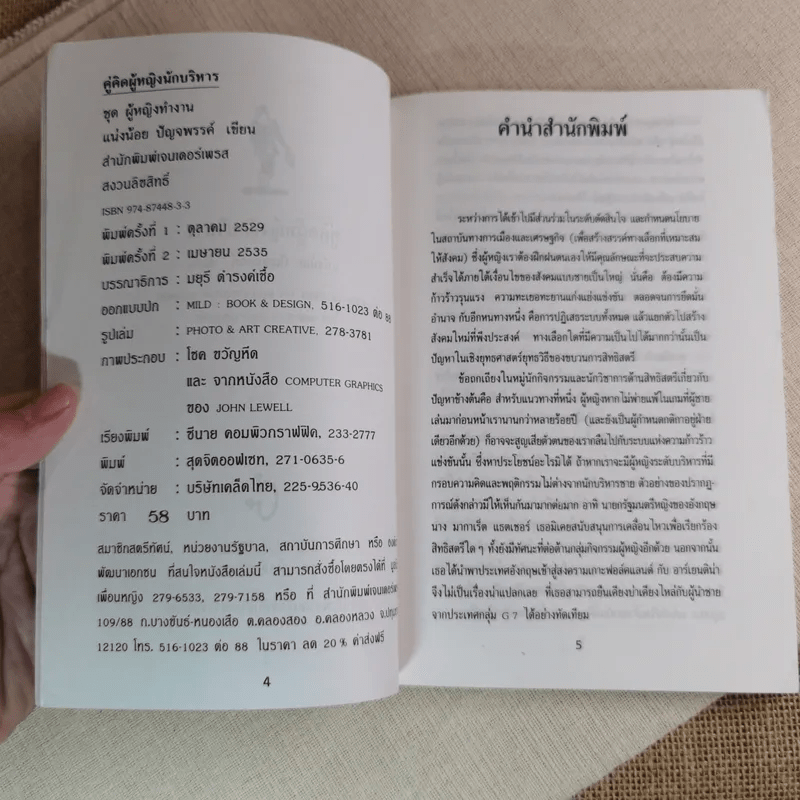 คู่คิดผู้หญิงนักบริหาร
ชุด ผู้หญิงทำงาน
แน่งน้อย ปัญจพรรค์ เขียน
สำนักพิมพ์เจนเดอร์เพรส
สงวนลิขสิทธิ์
ISBN 974-87448-3-3
พิมพ์ครั้งที่ 1 : ตุลาคม 2529
พิมพ์ครั้งที่ 2 : เมษายน 2535
บรรณาธิการ : มยุรี ดำรงค์เชื้อ
ออกแบบปก : MILD : BOOK & DESIGN, 516-1023 ต่อ 88
รูปเล่ม : PHOTO & ART CREATIVE, 278-3781
ภาพประกอบ : โชค ขวัญหีด
และ จากหนังสือ COMPUTER GRAPHICS
ของ JOHN LEWELL
เรียงพิมพ์ : ซีนาย คอมพิวกราฟฟิค, 233-2777
พิมพ์ : สุดจิตออฟเซท, 271-0635-6
จัดจำหน่าย : บริษัทเคล็ดไทย, 225-9536-40
ราคา 58 บาท
สมาชิกสตรีทัศน์, หน่วยงานรัฐบาล, สถาบันการศึกษา หรือ
พัฒนาเอกชน ที่สนใจหนังสือเล่มนี้ สามารถสั่งซื้อโดยตรงได้ที่
เพื่อนหญิง 279-6533, 279-7158 หรือ ที่ สำนักพิมพ์เจนเดอร์เพรส
109/88 ถ.บางขันธ์-หนองเสือ ต.คลองสอง อ.คลองหลวง จ.ปทุม
12120 โทร. 516-1023 ต่อ 88 ในราคา ลด 20 % ค่าส่งฟรี
4
คำนำสำนักพิมพ์
ระหว่างการได้เข้าไปมีส่วนร่วมในระดับตัดสินใจ และกำหนดนโยบาย
ในสถาบันทางการเมืองและเศรษฐกิจ (เพื่อสร้างสรรค์ทางเลือกที่เหมาะสม
ให้สังคม) ซึ่งผู้หญิงเราต้องฝึกฝนตนเองให้มีคุณลักษณะที่จะประสบความ
สำเร็จได้ภายใต้เงื่อนไขของสังคมแบบชายเป็นใหญ่ นั่นคือ ต้องมีความ
ก้าวร้าวรุนแรง ความทะเยอทะยานแก่งแย่งแข่งขัน ตลอดจนการยึดมั่น
อำนาจ กับอีกหนทางหนึ่ง คือการปฏิเสธระบบทั้งหมด แล้วแยกตัวไปสร้าง
สังคมใหม่ที่พึงประสงค์ ทางเลือกใดที่มีความเป็นไปได้มากกว่านั้นเป็น
ปัญหาในเชิงยุทธศาสตร์ยุทธวิธีของขบวนการสิทธิสตรี
ข้อถกเถียงในหมู่นักกิจกรรมและนักวิชาการด้านสิทธิสตรีเกี่ยวกับ
ปัญหาข้างต้นคือ สำหรับแนวทางที่หนึ่ง ผู้หญิงหากไม่พ่ายแพ้ในเกมที่ผู้ชาย
เล่นมาก่อนหน้าเรานานกว่าหลายร้อยปี (และยังเป็นผู้กำหนดกติกาอยู่ฝ่าย
เดียวอีกด้วย) ก็อาจจะสูญเสียตัวตนของเรากลืนไปกับระบบแห่งความก้าวร้าว
แข่งขันนั้น ซึ่งหาประโยชน์อะไรมิได้ ถ้าหากเราจะมีผู้หญิงระดับบริหารที่มี
กรอบความคิดและพฤติกรรมไม่ต่างจากนักบริหารชาย ตัวอย่างของปรากฏ-
การณ์ดังกล่าวมีให้เห็นกันมามากต่อมาก อาทิ นายกรัฐมนตรีหญิงของอังกฤษ
นาง มากาเร็ต แธตเชอร์ เธอมิเคยสนับสนุนการเคลื่อนไหวเพื่อเรียกร้อง
สิทธิสตรีใด ๆ ทั้งยังมีทัศนะที่ต่อต้านกลุ่มกิจกรรมผู้หญิงอีกด้วย นอกจากนั้น
เธอได้นำพาประเทศอังกฤษเข้าสู่สงครามเกาะฟอล์คแลนด์ กับ อาร์เยนติน่า
จึงไม่เป็นเรื่องน่าแปลกเลย ที่เธอสามารถยืนเคียงบ่าเคียงไหล่กับผู้นำชาย
จากประเทศกลุ่ม G 7 ได้อย่างทัดเทียม
5